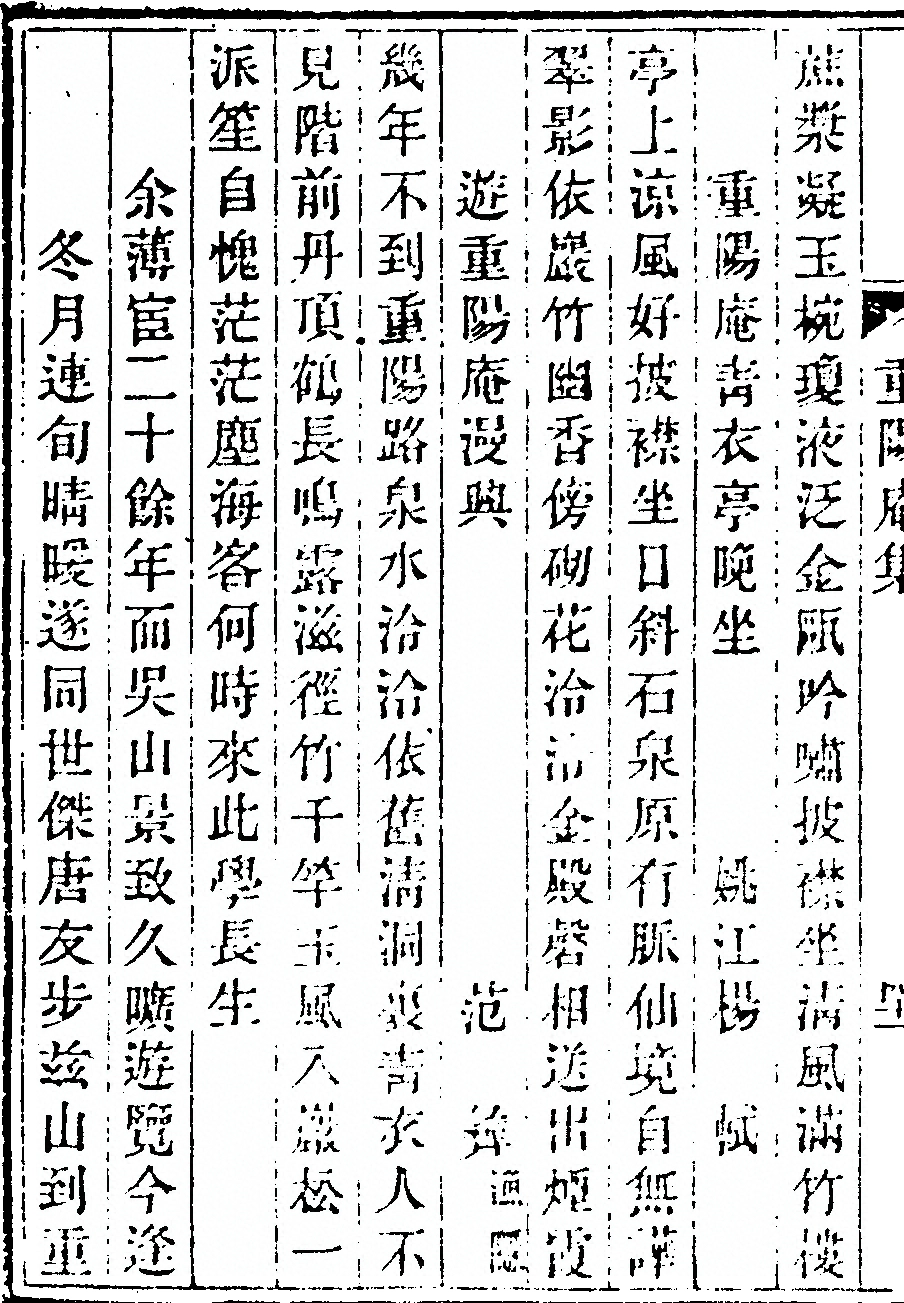 重陽庵集
蕉漿凝玉椀瓊液泛金甌吟嘯披襟坐清風滿竹樓
重陽庵青衣亭晚坐 姚江楊
亭上涼風好披襟坐日斜石泉原有脈仙境自無譁
翠影依巖竹幽香傍砌花泠泠金殿磬相送出煙霞
遊重陽庵漫興 范
幾年不到重陽路泉水泠泠依舊清洞裏青衣人不
見階前丹頂鶴長鳴露滋徑竹千竿玉風入巖松一
派笙自愧茫茫塵海客何時來此學長生
余薄宦二十餘年而吳山景致久曠遊覽今逢
冬月連旬晴暖遂同世傑唐友步茲山到重